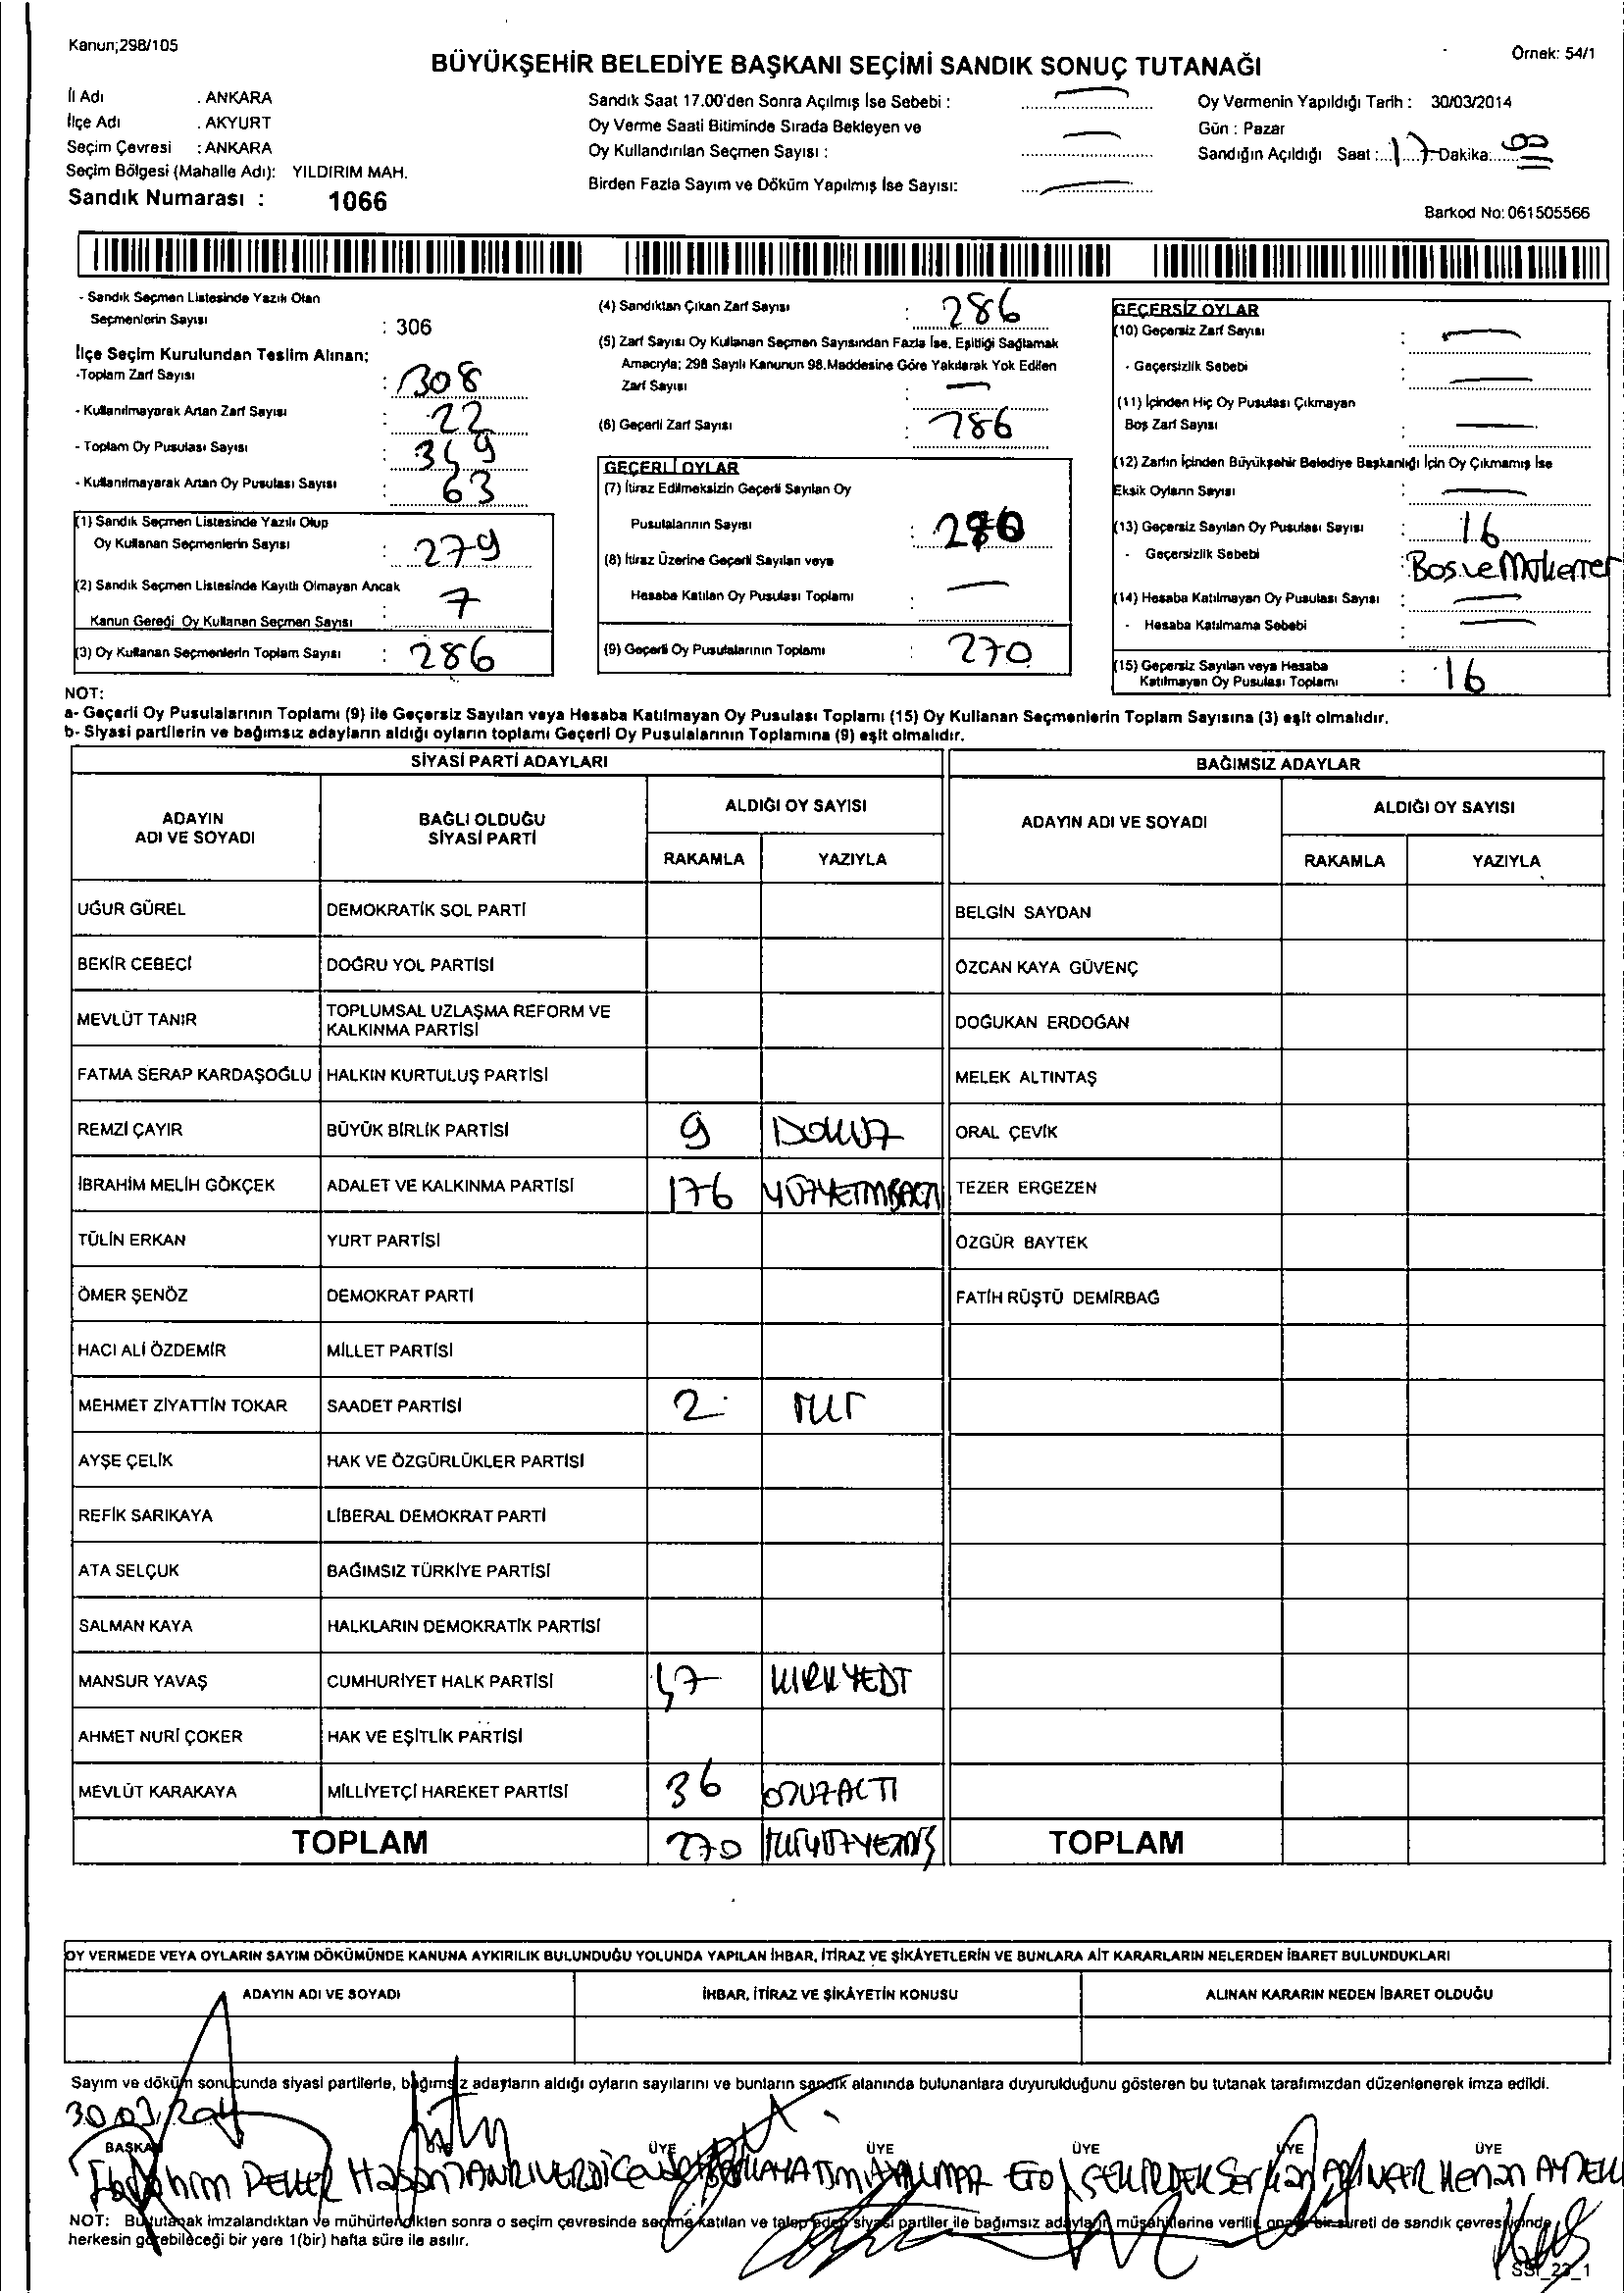 Kanun;298/105
Örnek: 54/1
BÜYÜKŞEHİR BELEDİYE BAŞKANI SEÇİMİ SANDIK SONUÇ TUTANAĞI
İl Adı . ANKARA
İlçe Adı . AKYURT
Seçim Çevresi : ANKARA
Seçim Bölgesi (Mahalle Adı): YILDIRIM MAH.
Sandık Numarası : 1066
Sandık Saat 17.00'den Sonra Açılmış İse Sebebi : —
Oy Verme Saati Bitiminde Sırada Bekleyen ve
Oy Kullandırılan Seçmen Sayısı : —
Birden Fazla Sayım ve Döküm Yapılmış İse Sayısı: —
Oy Vermenin Yapıldığı Tarih : 30/03/2014
Gün : Pazar
Sandığın Açıldığı Saat : 17 Dakika: 00
Barkod No: 061505566
- Sandık Seçmen Listesinde Yazılı Olan
Seçmenlerin Sayısı : 306
İlçe Seçim Kurulundan Teslim Alınan;
-Toplam Zarf Sayısı : 308
- Kullanılmayarak Artan Zarf Sayısı : 22
- Toplam Oy Pusulası Sayısı : 349
- Kullanılmayarak Artan Oy Pusulası Sayısı : 63
(1) Sandık Seçmen Listesinde Yazılı Olup
Oy Kullanan Seçmenlerin Sayısı : 279
(2) Sandık Seçmen Listesinde Kayıtlı Olmayan Ancak
Kanun Gereği Oy Kullanan Seçmen Sayısı : 7
(3) Oy Kullanan Seçmenlerin Toplam Sayısı : 286
(4) Sandıktan Çıkan Zarf Sayısı : 286
(5) Zarf Sayısı Oy Kullanan Seçmen Sayısından Fazla İse, Eşitliği Sağlamak
Amacıyla; 298 Sayılı Kanunun 98.Maddesine Göre Yakılarak Yok Edilen
Zarf Sayısı : —
(6) Geçerli Zarf Sayısı : 286
GEÇERLİ OYLAR
(7) İtiraz Edilmeksizin Geçerli Sayılan Oy
Pusulalarının Sayısı : 270
(8) İtiraz Üzerine Geçerli Sayılan veya
Hesaba Katılan Oy Pusulası Toplamı : —
(9) Geçerli Oy Pusulalarının Toplamı : 270
GEÇERSİZ OYLAR
(10) Geçersiz Zarf Sayısı : —
- Geçersizlik Sebebi : —
(11) İçinden Hiç Oy Pusulası Çıkmayan
Boş Zarf Sayısı : —
(12) Zarfın İçinden Büyükşehir Belediye Başkanlığı İçin Oy Çıkmamış İse
Eksik Oyların Sayısı : —
(13) Geçersiz Sayılan Oy Pusulası Sayısı : 16
- Geçersizlik Sebebi : Bos ve Mükerrer
(14) Hesaba Katılmayan Oy Pusulası Sayısı : —
- Hesaba Katılmama Sebebi : —
(15) Geçersiz Sayılan veya Hesaba
Katılmayan Oy Pusulası Toplamı : 16
NOT:
a- Geçerli Oy Pusulalarının Toplamı (9) ile Geçersiz Sayılan veya Hesaba Katılmayan Oy Pusulası Toplamı (15) Oy Kullanan Seçmenlerin Toplam Sayısına (3) eşit olmalıdır.
b- Siyasi partilerin ve bağımsız adayların aldığı oyların toplamı Geçerli Oy Pusulalarının Toplamına (9) eşit olmalıdır.
SİYASİ PARTİ ADAYLARI BAĞIMSIZ ADAYLAR
ADAYIN ADI VE SOYADI BAĞLI OLDUĞU SİYASİ PARTİ ALDIĞI OY SAYISI ADAYIN ADI VE SOYADI ALDIĞI OY SAYISI
RAKAMLA YAZIYLA RAKAMLA YAZIYLA
UĞUR GÜREL DEMOKRATİK SOL PARTİ BELGİN SAYDAN
BEKİR CEBECİ DOĞRU YOL PARTİSİ ÖZCAN KAYA GÜVENÇ
MEVLÜT TANIR TOPLUMSAL UZLAŞMA REFORM VE KALKINMA PARTİSİ DOĞUKAN ERDOĞAN
FATMA SERAP KARDAŞOĞLU HALKIN KURTULUŞ PARTİSİ MELEK ALTINTAŞ
REMZİ ÇAYIR BÜYÜK BİRLİK PARTİSİ 9 DOKUZ ORAL ÇEVİK
İBRAHİM MELİH GÖKÇEK ADALET VE KALKINMA PARTİSİ 176 YÜZYETMİŞALTI TEZER ERGEZEN
TÜLİN ERKAN YURT PARTİSİ ÖZGÜR BAYTEK
ÖMER ŞENÖZ DEMOKRAT PARTİ FATİH RÜŞTÜ DEMİRBAĞ
HACI ALİ ÖZDEMİR MİLLET PARTİSİ
MEHMET ZİYATTİN TOKAR SAADET PARTİSİ 2 İKİ
AYŞE ÇELİK HAK VE ÖZGÜRLÜKLER PARTİSİ
REFİK SARIKAYA LİBERAL DEMOKRAT PARTİ
ATA SELÇUK BAĞIMSIZ TÜRKİYE PARTİSİ
SALMAN KAYA HALKLARIN DEMOKRATİK PARTİSİ
MANSUR YAVAŞ CUMHURİYET HALK PARTİSİ 47 KIRKYEDİ
AHMET NURİ ÇOKER HAK VE EŞİTLİK PARTİSİ
MEVLÜT KARAKAYA MİLLİYETÇİ HAREKET PARTİSİ 36 OTUZALTI
TOPLAM 270 İKİYÜZYETMİŞ TOPLAM
OY VERMEDE VEYA OYLARIN SAYIM DÖKÜMÜNDE KANUNA AYKIRILIK BULUNDUĞU YOLUNDA YAPILAN İHBAR, İTİRAZ VE ŞİKÂYETLERİN VE BUNLARA AİT KARARLARIN NELERDEN İBARET BULUNDUKLARI
ADAYIN ADI VE SOYADI İHBAR, İTİRAZ VE ŞİKÂYETİN KONUSU ALINAN KARARIN NEDEN İBARET OLDUĞU
Sayım ve döküm sonucunda siyasi partilerle, bağımsız adayların aldığı oyların sayılarını ve bunların sandık alanında bulunanlara duyurulduğunu gösteren bu tutanak tarafımızdan düzenlenerek imza edildi.
30.03.2014
BAŞKAN ÜYE ÜYE ÜYE ÜYE ÜYE ÜYE
İbrahim Hasan TANRIVERDİ Erol ÇEKİRDEK Serkan Kenan
NOT: Bu tutanak imzalandıktan ve mühürlendikten sonra o seçim çevresinde seçime katılan ve talep eden siyasi partiler ile bağımsız adayların müşahitlerine verilir, onaylı bir sureti de sandık çevresinde
herkesin görebileceği bir yere 1(bir) hafta süre ile asılır.